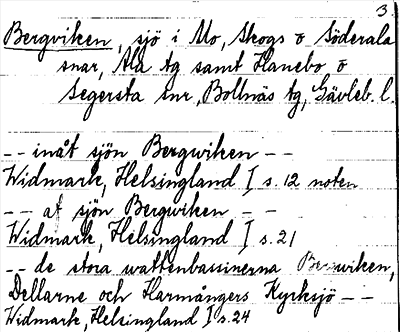 3.
Bergviken, sjö i Mo, Skogs o Söderala
snar, Ala tg samt Hanebo o
Segersta snr, Bollnäs tg, Gävleb. l.
-- inåt sjön Bergwiken --
Widmark, Helsingland I s. 12 noten
-- af sjön Bergwiken --
Widmark, Helsingland I s. 21
-- de stora wattenbassinerna Bergwiken,
Dellarne och Harmångers Kyrksjö --
Widmark, Helsingland I s. 24